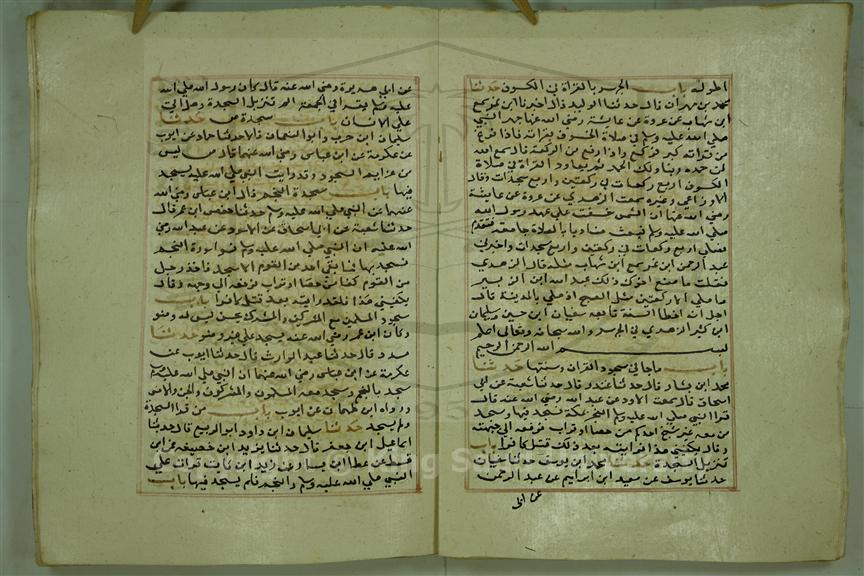 اطول باب الجهر بالقراة في الكسوف حدثنا
محمد بن مهران قال حدثنا الوليد قال اخبرنا ابن نمر سمع
ابن شهاب عن عروة عن عايشة رضي الله عنها جهر النبي
صلي الله عليه وسلم في صلاة الخسوف بقراته فاذا فرغ
من قراته كبر فركع واذا رفع من الركعة قال سمع الله
لمن حمده ربنا ولك الحمد ثم يعاود القراة في صلاة
الكسوف اربع ركعات في ركعتين واربع سجدات وقال
الاوزاعي وغيره سمعت الزهدي عن عروة عن عايشة
رضي الله عنها ان الشمس خسفت علي عهد رسول الله
صلي الله عليه وسلم فبعث مناديا بالصلاة جامعة فتقدم
فصلي اربع ركعات في ركعتين واربع سجدات واخبرني
عبد الرحمن ابن نمر سمع ابن شهاب مثله قال الزهدي
فقلت ما صنع اخوك ذلك عبد الله ابن الزبير
ما صلي الا ركعتين مثل الصبح اذ صلي بالمدينة قال
اجل انه اخطا السنة تابعه سفيان ابن حسين وسليمان
ابن كثير الزهدي في الجهر والله سبحانه وتعالي اعلم
بسم الله الرحمن الرحيم
باب ما جا في سجود القران وسنتها حدثنا
محمد ابن بشار قال حدثنا غندر قال حدثنا شعبة عن ابي
اسحاق قال سمعت الاسود عن عبد الله رضي الله عنه قال
قرا النبي صلي الله عليه وسلم النجم بمكة فسجد فيها وسجد
من معه غير شيخ اخذ كم من حصا او تراب فرفعه الي جبهته
وقال يكفيني هذا فرايته بعد ذلك قتل كافرا باب
تنزيل السجدة حدثنا محمد ابن يوسف حدثنا سفيان
حدثنا يوسف عن سعيد ابن ابراهيم عن عبد الرحمن
عن ابي
عن ابي هريرة رضي الله عنه قال كان رسول الله صلي الله
عليه وسلم يقرا في الجمعة الم تنزيل السجدة وهل اتي
علي الانسان باب سجدة ص حدثنا
سليمان ابن حرب وابو النعمان قالا حدثنا حماد عن ايوب
عن عكرمة عن ابن عباس رضي الله عنهما قال ص ليس
من عزايم السجود وقد رايت النبي صلي الله عليه يسجد
فيها باب سجدة النجم قال ابن عباس رضي الله
عنهما عن النبي صلي الله عليه وسلم حدثنا حفص ابن عمر قال
حدثنا شعبة عن ابي اسحاق عن الاسود عن عبد الله رضي
الله عليه ان النبي صلي الله عليه وسلم قرا سورة النجم
فسجد بها فما بقي احد من القوم الا سجد فاخذ رجل
من القوم كفا من حصا او تراب فرفعه الي وجهه وقال
يكفيني هذا فلقد رايته بعد قتل كافرا باب
سجود المسلمين مع المشركين والمشرك نجس ليس له وضو
وكان ابن عمر رضي الله عنه يسجد علي غير وضو حدثنا
مسدد قال حدثنا عبد الوارث قال حدثنا ايوب عن
عكرمة عن ابن عباس رضي الله عنهما ان النبي صلي الله عليه وسلم
سجد بالنجم وسجد معه المسلمون والمشركون والجن والانس
ورواه ابن طهمان عن ايوب باب من قرا السجدة
ولم يسجد حدثنا سليمان ابن داود ابو الربيع قال حدثنا
اسماعيل ابن جعفر قال حدثنا يزيد ابن خصيفة عن ابن
قسيط عن عطا ابن يسار عن زيد ابن ثابت قرات علي
النبي صلي الله عليه وسلم والنجم فلم يسجد فيها باب